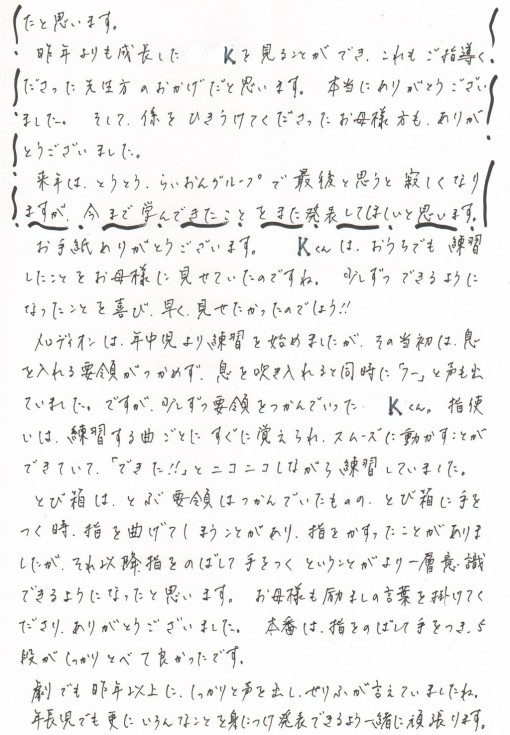 たと思います。
昨年よりも成長した Kを見ることができ、これもご指導く
ださった先生方のおかげだと思います。本当にありがとうござい
ました。そして、係をひきうけてくださったお母様方も、ありが
とうございました。
来年は、とうとう、らいおんグループで最後と思うと寂しくなり
ますが、今まで学んできたことをまた発表してほしいと思います。
お手紙ありがとうございます。 Kくんは、おうちでも練習
したことをお母様に見せていたのですね。少しずつできるように
なったことを喜び、早く見せたかったのでしょう!!
メロディオンは、年中児より練習を始めましたが、その当初は、息
を入れる要領がつかめず、息を吹き入れると同時に「ウー」と声も出
ていました。ですが、少しずつ要領をつかんでいった Kくん。指使
いは、練習する曲ごとにすぐに覚えられ、スムーズに動かすことが
できていて、「できた!!」とニコニコしながら練習していました。
とび箱は、とぶ要領はつかんでいたものの、とび箱に手を
つく時、指を曲げてしまうことがあり、指をかすったことがありま
したが、それ以降指をのばして手をつくということがより一層意識
できるようになったと思います。お母様も励ましの言葉を掛けてく
ださり、ありがとうございました。本番は、指をのばして手をつき、5
段がしっかりとべて良かったです。
劇でも昨年以上に、しっかりと声を出し、せりふが言えていましたね。
年長児でも更にいろんなことを身につけ発表できるよう一緒に頑張ります。